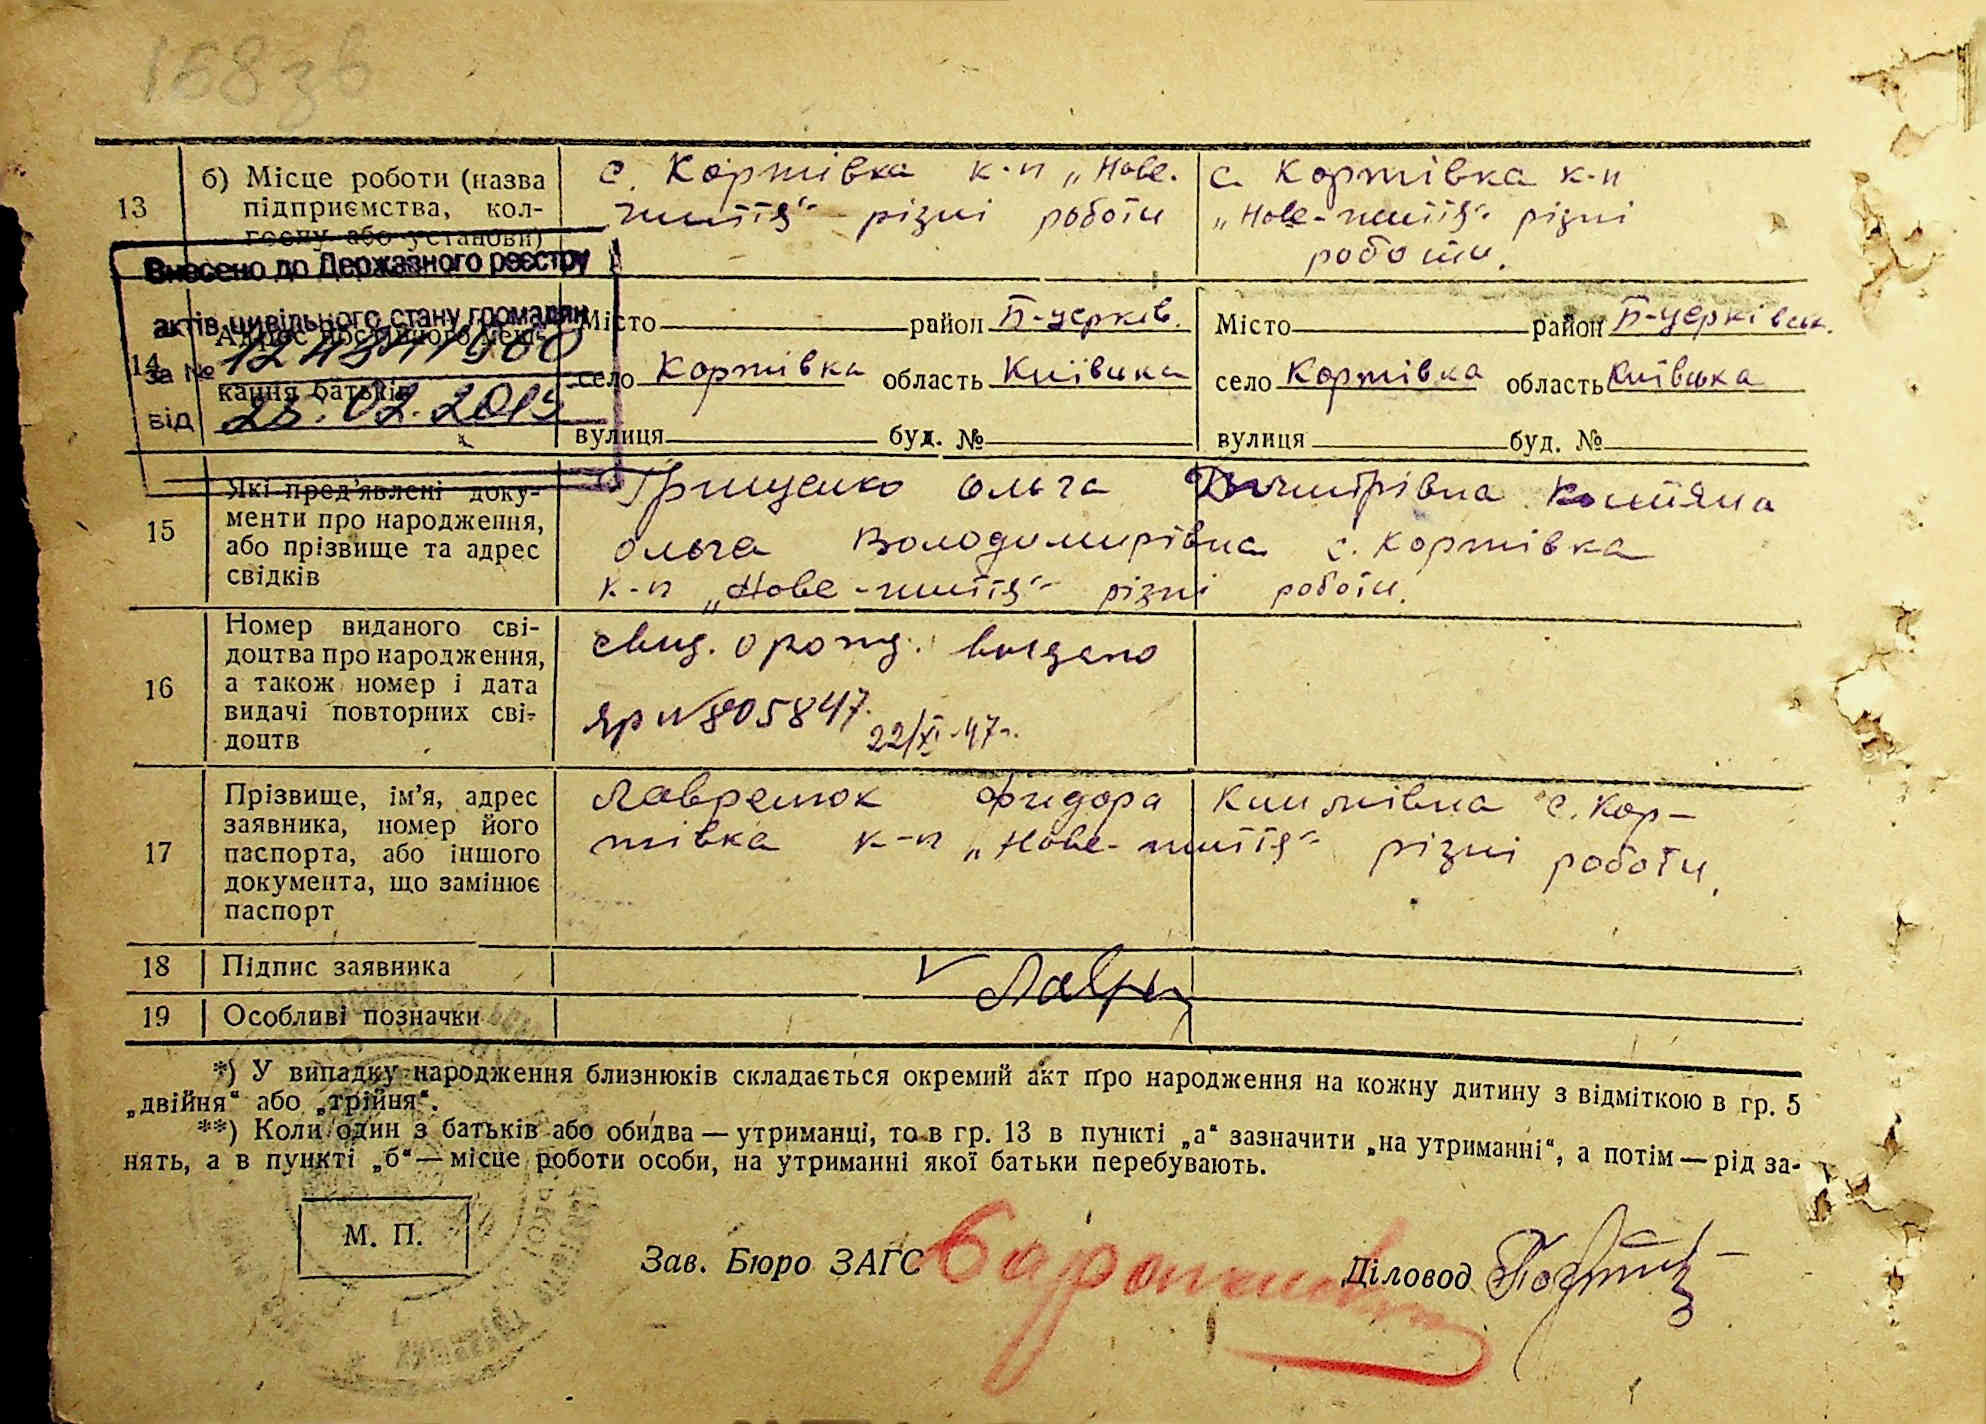 168 зв
13
б) Місце роботи (назва
підприємства, кол-
госпу або установи)
с. Коржівка к-п „Нове-
життя“ різні роботи
с. Коржівка к-п
„Нове-життя“ різні
роботи.
Внесено до Державного реєстру
актів цивільного стану громадян
за №
від 25.02.2015
14
Адрес постійного меш-
кання батьків
Місто район Б-церків.
село Коржівка область Київська
вулиця буд. №
Місто район Б-церківськ.
село Коржівка область Київська
вулиця буд. №
15
Які пред’явлені доку-
менти про народження,
або прізвище та адрес
свідків
Грищенко Ольга Дмитрівна
Ольга Володимирівна с. Коржівка
к-п „Нове-життя“ різні роботи.
16
Номер виданого сві-
доцтва про народження,
а також номер і дата
видачі повторних сві-
доцтв
свид. о рожд. выдано
№ 805847
22/XI-47г.
17
Прізвище, ім’я, адрес
заявника, номер його
паспорта, або іншого
документа, що замінює
паспорт
Лавренюк с. Кор-
жівка к-п „Нове-життя“ різні роботи.
18
Підпис заявника
19
Особливі позначки
*) У випадку народження близнюків складається окремий акт про народження на кожну дитину з відміткою в гр. 5
„двійня“ або „трійня“.
**) Коли один з батьків або обидва — утриманці, то в гр. 13 в пункті „а“ зазначити „на утриманні“, а потім — рід за-
нять, а в пункті „б“ — місце роботи особи, на утриманні якої батьки перебувають.
М. П.
Зав. Бюро ЗАГС
Діловод